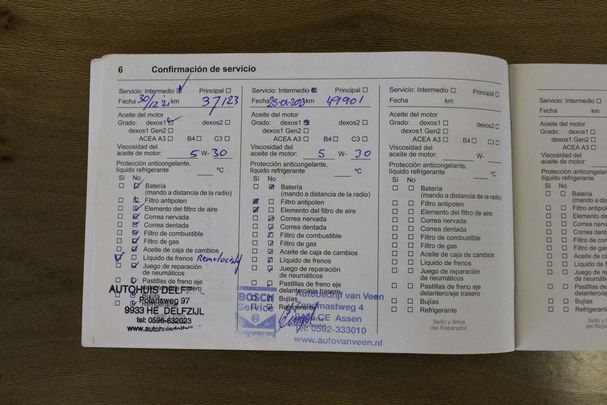 6 Confirmación de servicio
Servicio: Intermedio Principal
Fecha 30/12 21 km 37123
Aceite del motor
Grado: dexos1 dexos2
dexos1 Gen2
ACEA A3 B4 C3
Viscosidad del
aceite de motor: 5 W- 30
Protección anticongelante,
líquido refrigerante °C
Sí No
Batería
(mando a distancia de la radio)
Filtro antipolen
Elemento del filtro de aire
Correa nervada
Correa dentada
Filtro de combustible
Filtro de gas
Aceite de caja de cambios
Líquido de frenos
Juego de reparación
de neumáticos
Pastillas de freno eje
AUTOHUIS DELFZIJL
Polarisweg 97
9933 HE DELFZIJL
tel: 0596-632023
Servicio: Intermedio Principal
Fecha 25-01-2023 km 49901
Aceite del motor
Grado: dexos1 dexos2
dexos1 Gen2
ACEA A3 B4 C3
Viscosidad del
aceite de motor: 5 W- 30
Protección anticongelante,
líquido refrigerante °C
Sí No
Batería
(mando a distancia de la radio)
Filtro antipolen
Elemento del filtro de aire
Correa nervada
Correa dentada
Filtro de combustible
Filtro de gas
Aceite de caja de cambios
Líquido de frenos
Juego de reparación
de neumáticos
Pastillas de freno eje
delantero/eje trasero
Bujías
BOSCH
Service
Autobedrijf van Veen
CE Assen
tel. 0592-333010
www.autovanveen.nl
Servicio: Intermedio Principal
Fecha km
Aceite del motor
Grado: dexos1 dexos2
dexos1 Gen2
ACEA A3 B4 C3
Viscosidad del
aceite de motor: W-
Protección anticongelante,
líquido refrigerante °C
Sí No
Batería
(mando a distancia de la radio)
Filtro antipolen
Elemento del filtro de aire
Correa nervada
Correa dentada
Filtro de combustible
Filtro de gas
Aceite de caja de cambios
Líquido de frenos
Juego de reparación
de neumáticos
Pastillas de freno eje
delantero/eje trasero
Bujías
Refrigerante
Sello y firma
del Reparador
Servicio: Intermedio
Fecha km
Aceite del motor
Grado: dexos1
dexos1 Gen2
ACEA A3
Viscosidad del
aceite de motor:
Protección anticongelante,
líquido refrigerante
Sí No
Batería
(mando a dista
Filtro antipolen
Elemento del filtro
Correa nervada
Correa dentada
Filtro de combust
Filtro de gas
Aceite de caja de
Líquido de frenos
Juego de reparación
de neumáticos
Pastillas de freno
delantero/eje
Bujías
Refrigerante